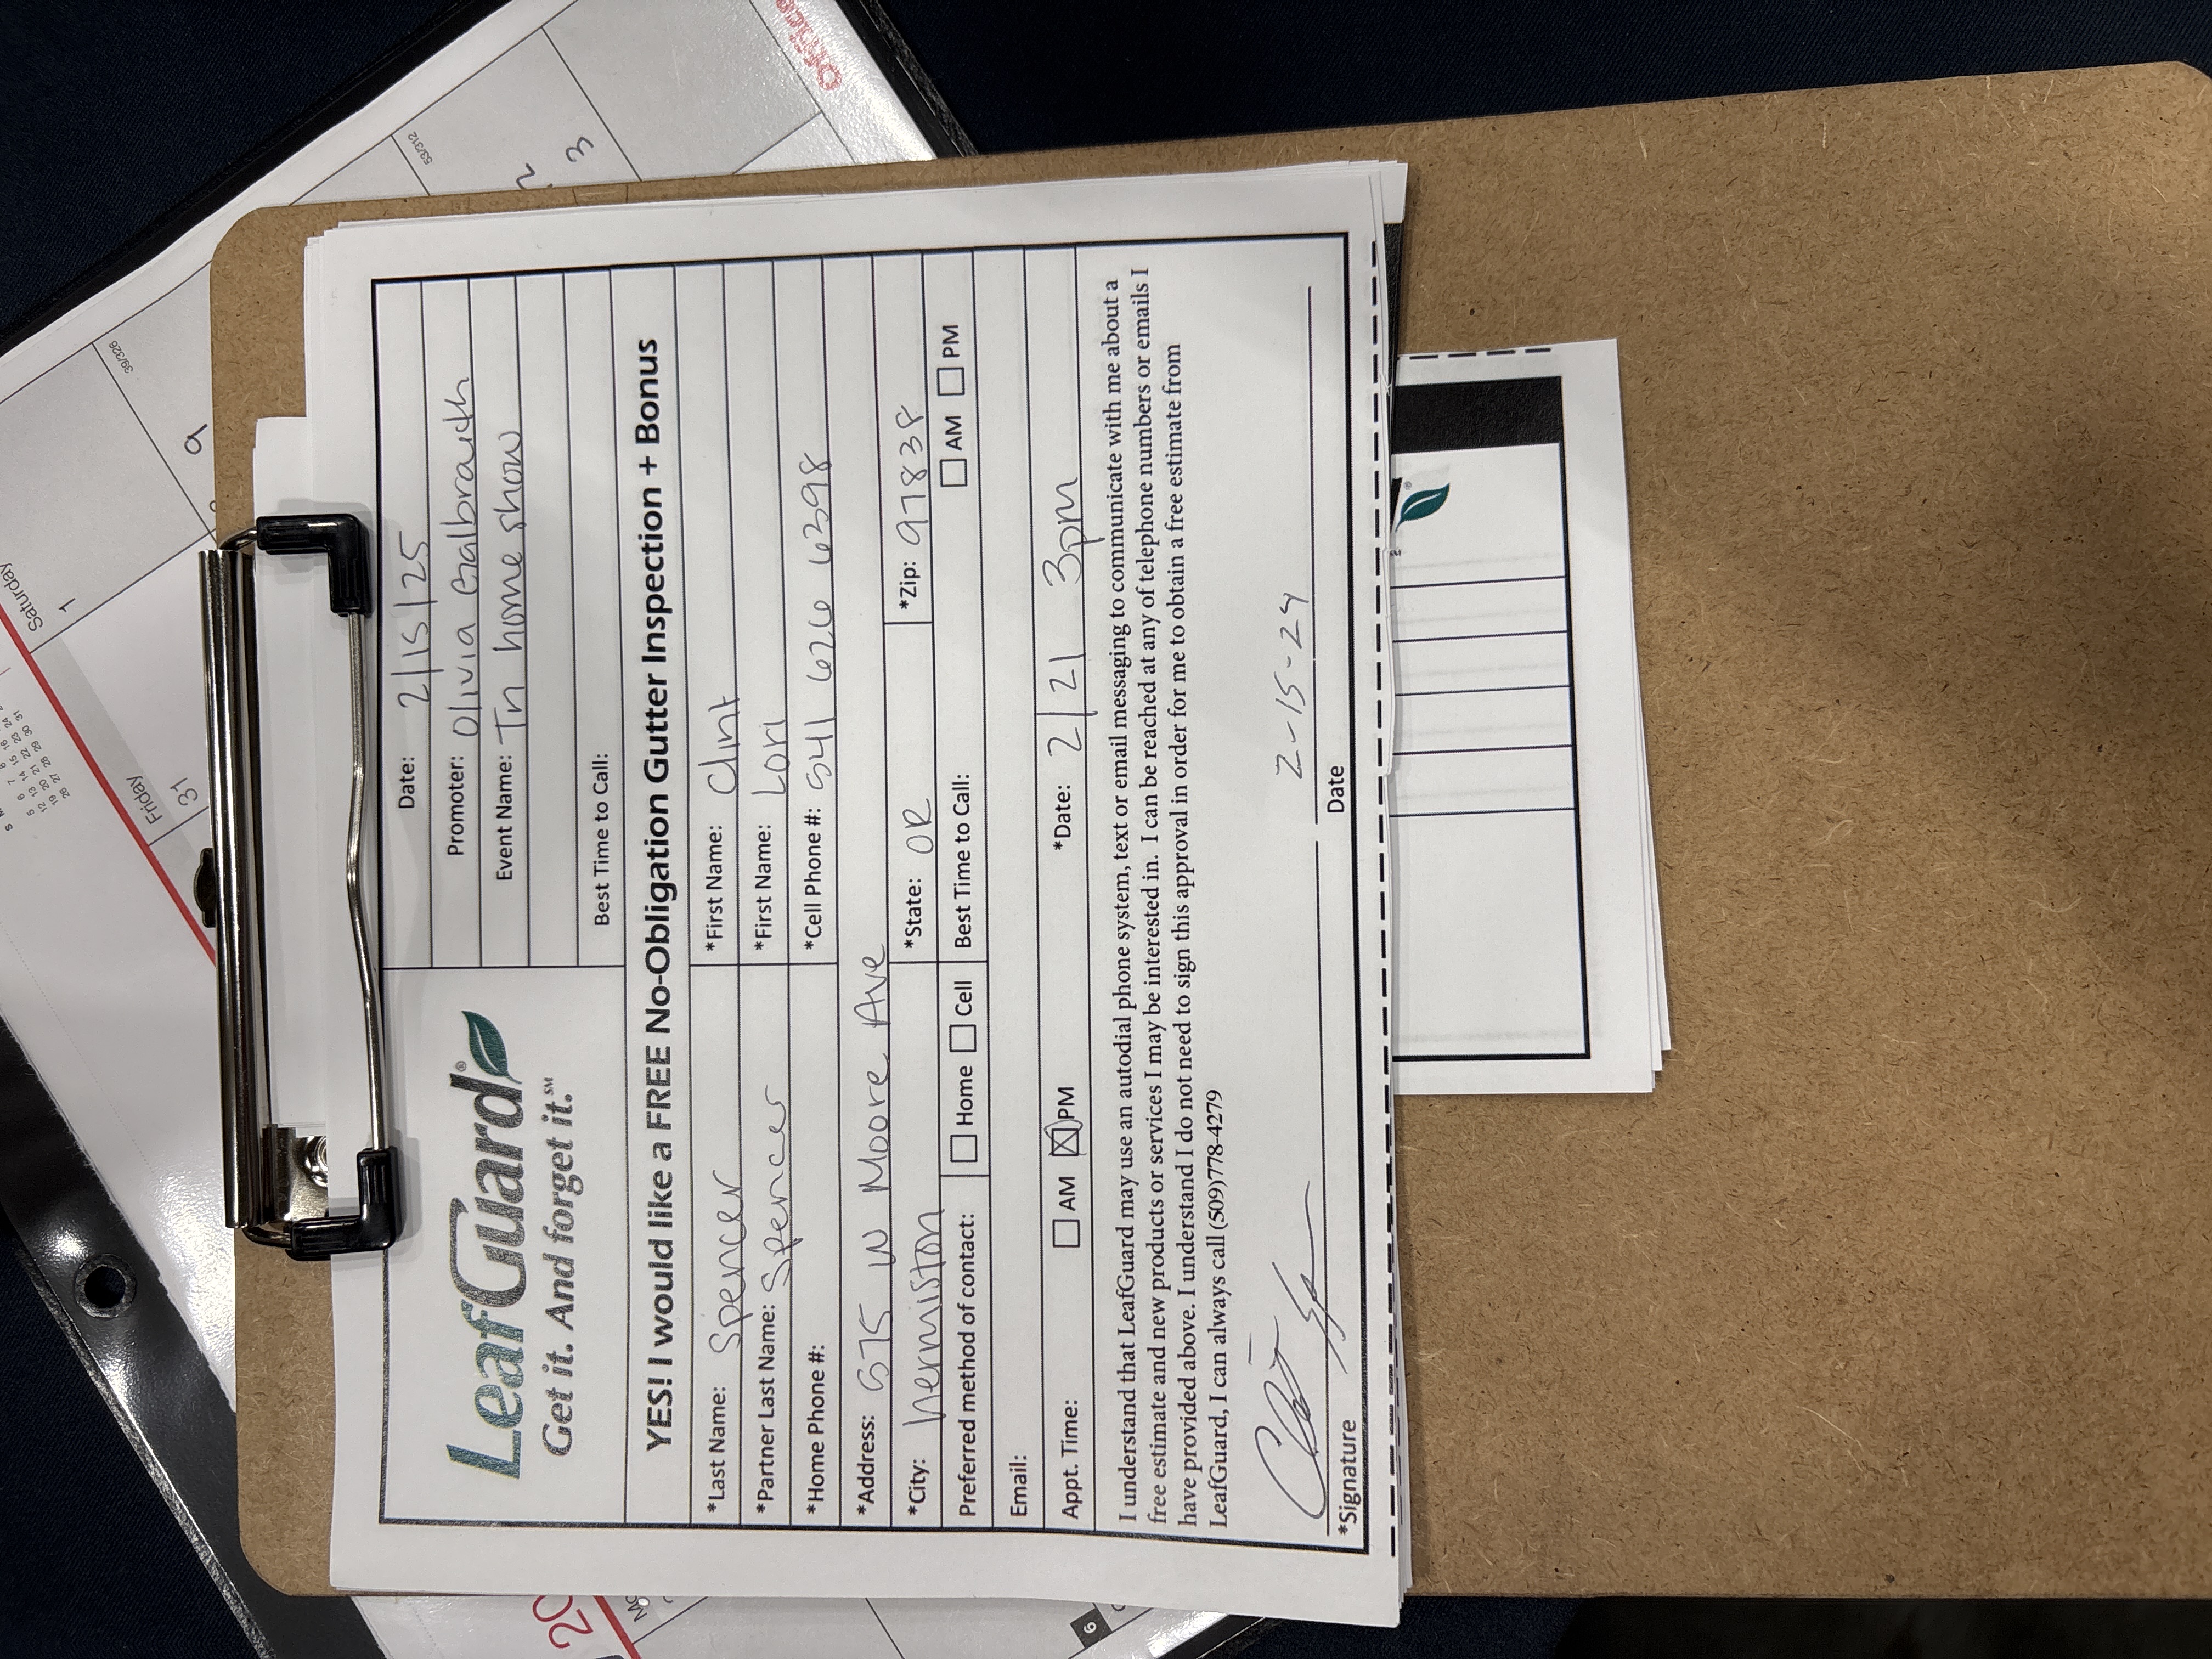 Saturday
1
39/326
Friday
31
9
53/312
3
20
6
Office
LeafGuard®
Get it. And forget it.℠
Date: 2/15/25
Promoter: Olivia Galbraith
Event Name: Tri home show
Best Time to Call:
YES! I would like a FREE No-Obligation Gutter Inspection + Bonus
*Last Name: Spencer *First Name: Clint
*Partner Last Name: Spencer *First Name: Lori
*Home Phone #: *Cell Phone #: 541 626 6398
*Address: 575 W Moore Ave
*City: hermiston *State: OR *Zip: 97838
Preferred method of contact: Home Cell Best Time to Call: AM PM
Email:
Appt. Time: AM PM *Date: 2/21 3pm
I understand that LeafGuard may use an autodial phone system, text or email messaging to communicate with me about a
free estimate and new products or services I may be interested in. I can be reached at any of telephone numbers or emails I
have provided above. I understand I do not need to sign this approval in order for me to obtain a free estimate from
LeafGuard, I can always call (509)778-4279
2-15-24
*Signature Date